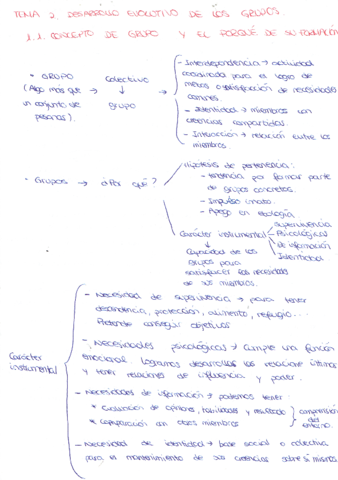 TEMA 2. DESARROLLO EVOLUTIVO DE LOS GRUPOS.
1.1. CONCEPTO DE GRUPO Y EL PORQUÉ DE SU FORMACIÓN
- GRUPO
(Algo más que → 
un conjunto de
personas).
Colectivo
↓
grupo
- Interdependencia → actividad
coordinada para el logro de
metas o satisfacción de necesidades
comunes.
- Identidad → miembros con
creencias compartidas.
- Interacción → relación entre los
miembros.
- Grupos → ¿Por qué?
Hipótesis de pertenencia:
- tendencia por formar parte
de grupos concretos.
- Impulso innato.
- Apego en etología
Carácter instrumental
- Supervivencia
- Psicológicas
- de información
- Identidad
Capacidad de los
grupos para
satisfacer las necesidades
de sus miembros.
Carácter
instrumental
- Necesidad de supervivencia → para tener
descendencia, protección, alimento, refugio...
Pretende conseguir objetivos
- Necesidades psicológicas → Cumple una función
emocional. Logramos desarrollar las relaciones
y tener relaciones de influencia y poder.
- Necesidades de información → podemos tener:
* Evaluación de opiniones, habilidades y resultado
* Comparación con otros miembros
comprensión
del
entorno.
- Necesidad de identidad → base social o colectiva
para el mantenimiento de sus creencias sobre sí mismos